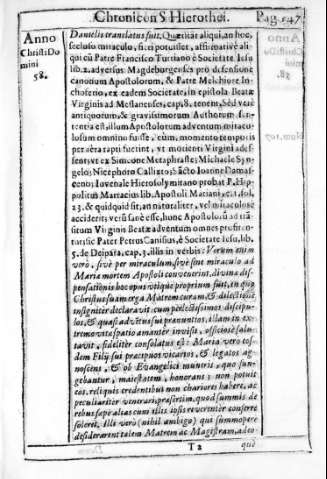 Chronicon S. Hierothei. Pag. 547
Anno
Christi Do
mini
58.
Danielis translatus fuit. Quæritat aliqui, an hoc,
secluso miraculo, fieri potuisset, affirmativè ali-
qui cū Patre Francisco Turriano è Societate Iesu
lib. 2. adversus Magdeburgenses pro defensione
canonum Apostolorum, & Patre Melchiore In-
chofetio, ex eadem Societate, in epistola Beatæ
Virginis ad Messanenses, cap. 8. tenent, Sed verè
antiquorum, & gravissimorum Authorum sen-
tentia est, illum Apostolorum adventum miracu-
losum omnino fuisse, eùm, momento temporis
per aëra rapti fuerint, ut morienti Virgini adef-
sent: ut ex Simeone Metaphraste; Michaële Syn-
gelo; Nicephoro Callixto; Sācto Ioanne Damas-
ceno; Iuvenale Hierosolymitano probat P. Hip-
politus Marracius lib. Apostoli Mariani, c. 1. dol.
23. & quidquid sit, an naturaliter, vel miraculose
acciderit; verū sanè esse, hunc Apostolorū ad trā-
situm Virginis Beatæ adventum omnes profi-
tentur: sic Pater Petrus Canisius, è Societate Iesu, lib.
5. de Deipara, cap. 3. illis in verbis: Verum enim
verò, sivè per miraculum, sivè sine miraculo ad
Mariæ mortem Apostoli convenerint, divinæ dis-
pensationis hoc opus utique proprium fuit, in quo
Christus suam erga Matrem curam, & dilectionē
insigniter declaravit: cum perfectissimos discipu-
los, & quasi adventus sui prænuntios, illam in ex-
tremo vitæ spatio amanter invisit, officiose salu-
tavit, fideliter consolatus est: Maria verò eos-
dem Filij sui præcipuos vicarios, & legatos ag-
noscens, & ob Evangelici muneris, quo fun-
gebantur, maiestatem, honorans; non potuit
eos, reliquis credentibus non chariores habere, ac
peculiariter venerari, præsertim, quod summis de
rebus sæpè aliàs cum illis ipsis reverenter conferre
soleret. Illi verò (nihil ambigo) qui summopere
desiderarent talem Matrem ac Magistram, adeo-
T 2
què